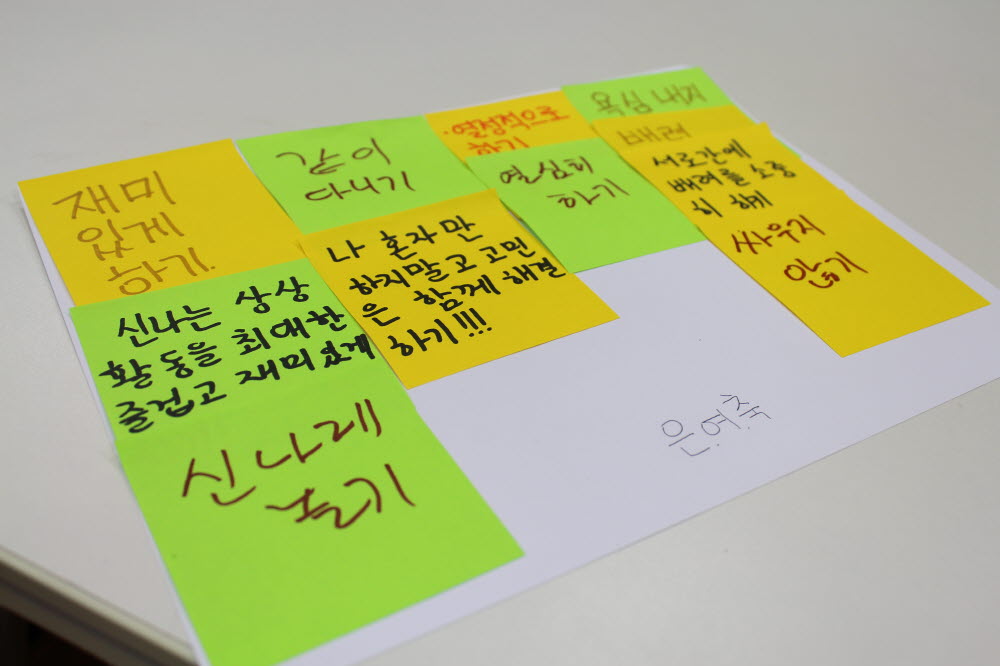 재미
있게
하기.
신나는 상상
활동을 최대한
즐겁고 재미있게
신나게
놀기
같이
다니기
나 혼자만
하지말고 고민
은 함께 해결
하기!!!
·열정적으로
하기
열심히
하기
욕심 내지
배려
서로간에
배려를 소중
히 해
싸우지
않기
은.여.축